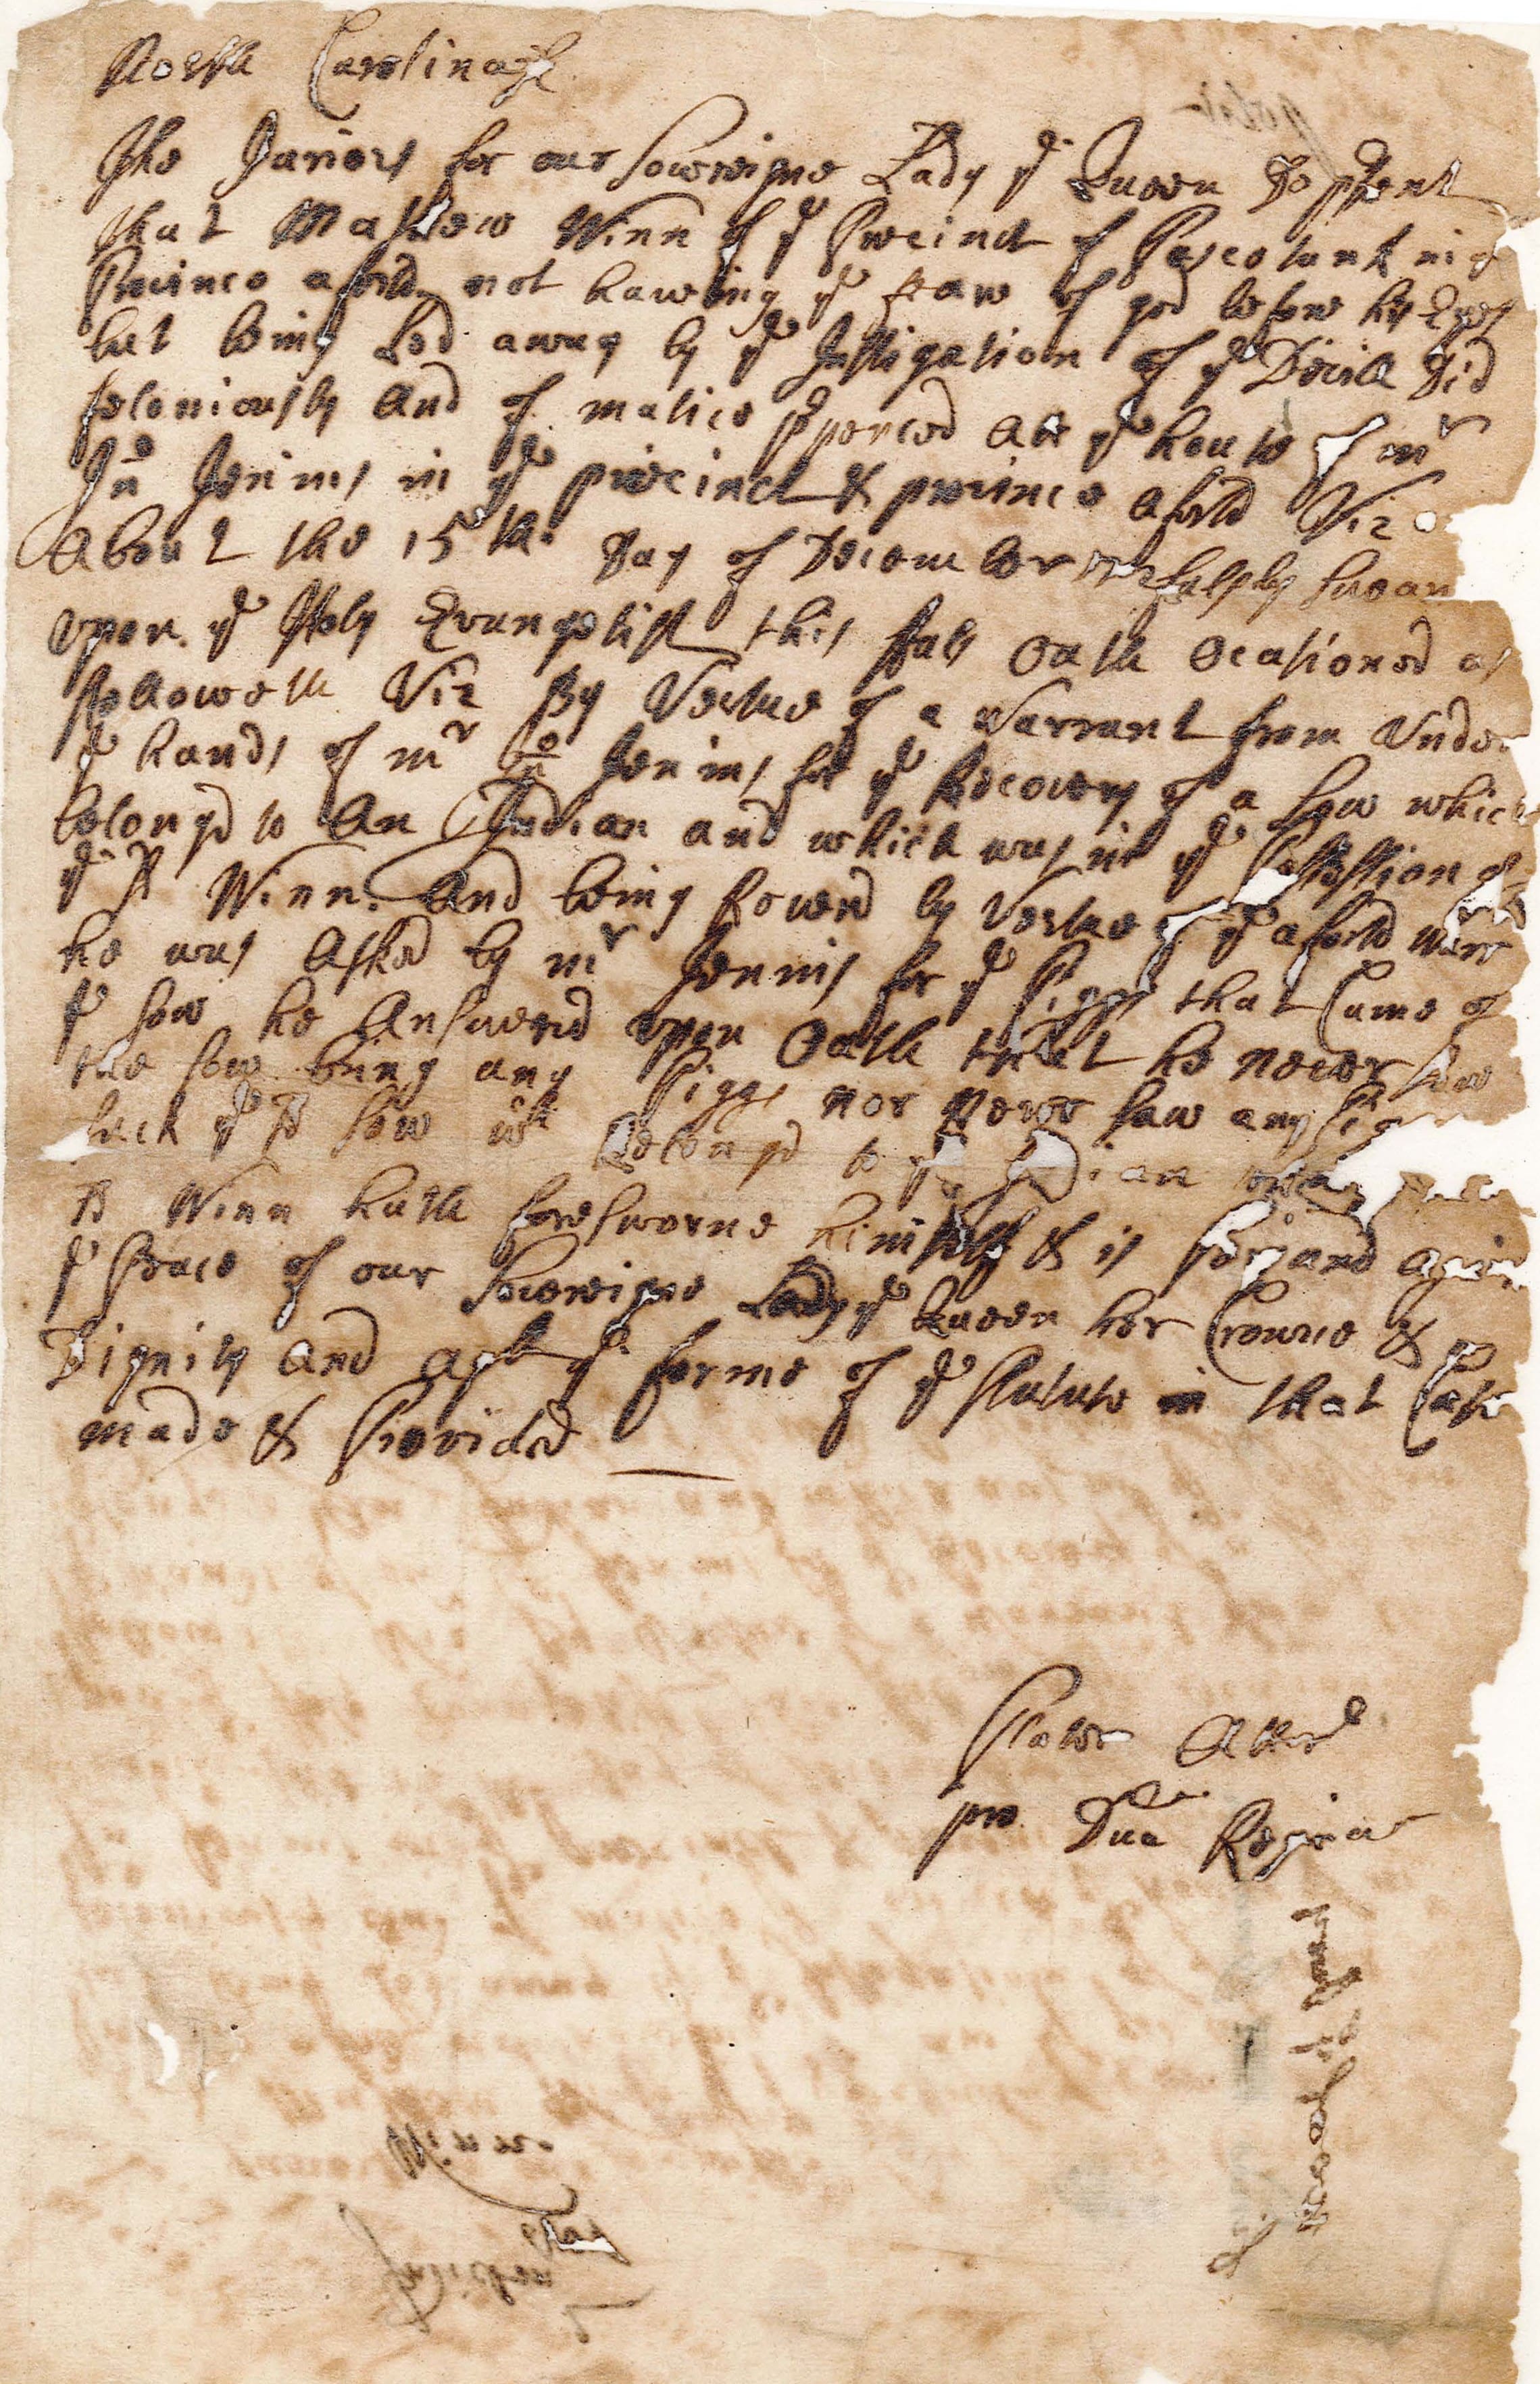 North Carolina ss
The Juriors for our Sovereigne Lady ye Queen Do psent
that Mathew Winn of ye Precinct of Pascotank in ye
Province aforsd not haveing ye fear of god before his Eyes
but being Led away by ye Instigation of ye Divill did
feloniously and of malice ppenced Att ye house of mr
Jno Jenins in ye precinct & province aforsd Viz
About the 15th: day of December falsly swear
upon ye Holy Evangelist this fals Oath Ocationed as
followeth Viz By Vertue of a Warrant from Under
ye hands of mr Jno Jenins for ye Recovery of a Sow which
belongd to An Indian and which was in ye possession of
ye sd Winn. And being found by Vertue of ye aforsd warr
he was Asked by mr Jennis for ye Piggs that Came of
ye sow he Answered upon Oath that he never saw
the sow bring any Piggs nor Never saw any Pigs
suck ye sd sow wch Belongd to ye Indian
sd Winn hath foresworne himself & is
ye Peace of our Sovereigne Lady ye Queen her Crowne &
Dignity and agst ye forme of ye Statute in that Case
made & Provided
Plater Atter
pro Dna Regina
Winn
Indictmt